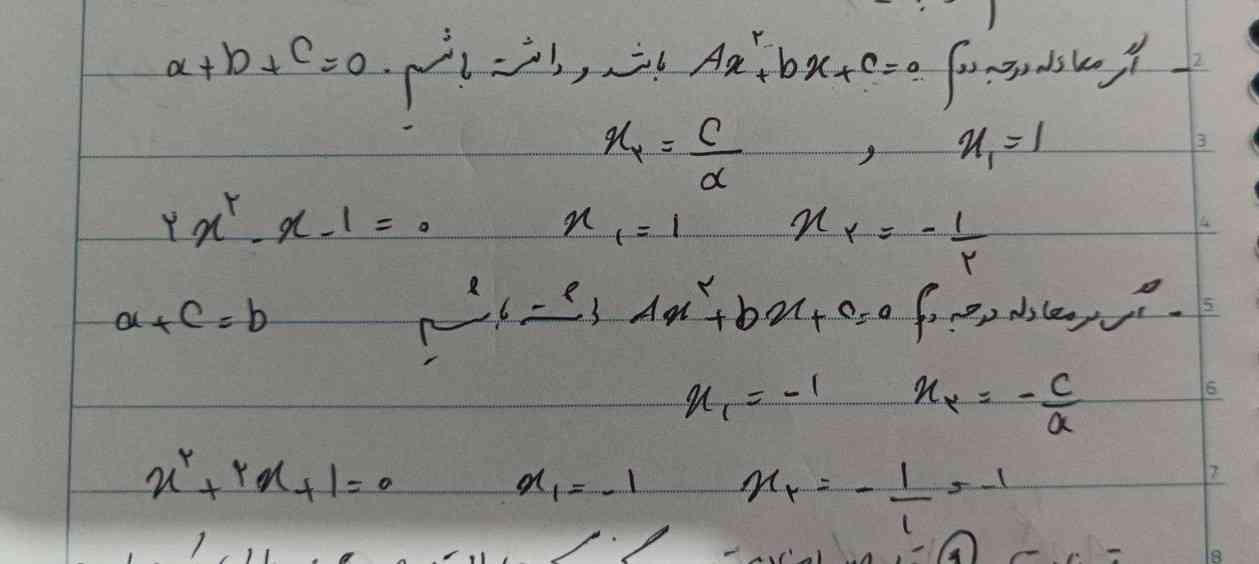 - اگر معادله درجه دوم Ax²+bx+c=0 باشد و داشته باشیم a+b+c=0.
x₁=1 , x₂=c/a
۲x²-x-1=0 x₁=1 x₂=-1/۲
- اگر در معادله درجه دوم Ax²+bx+c=0 داشته باشیم a+c=b
x₁=-1 x₂=-c/a
x²+۲x+1=0 x₁=-1 x₂=-1/1=-1